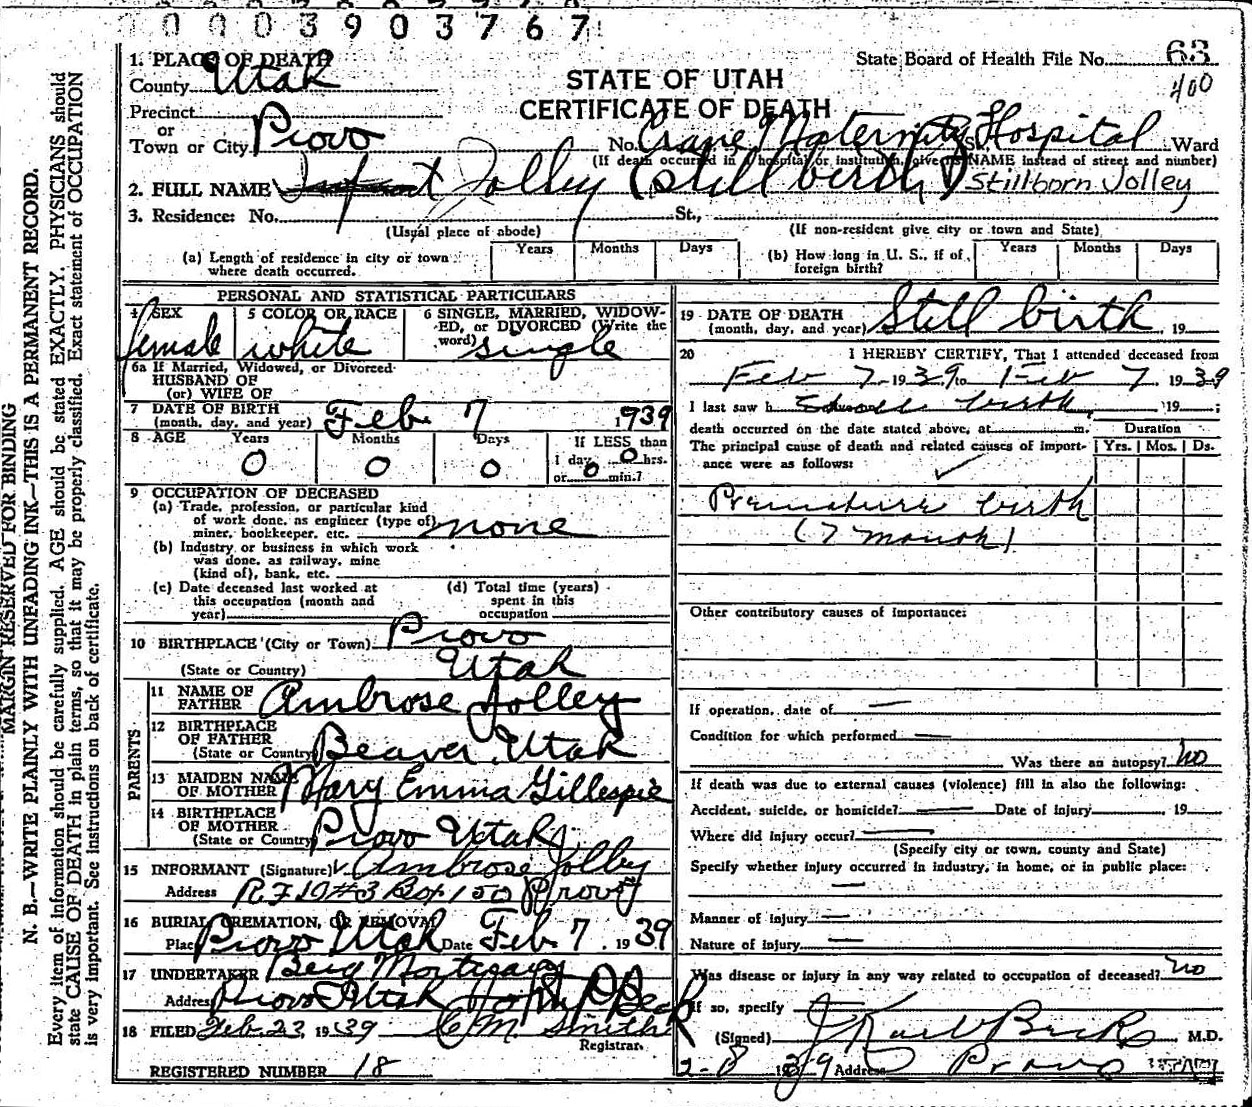 0 0 0 3 9 0 3 7 6 7
MARGIN RESERVED FOR BINDING
N. B.—WRITE PLAINLY WITH UNFADING INK—THIS IS A PERMANENT RECORD.
Every item of information should be carefully supplied. AGE should be stated EXACTLY. PHYSICIANS should
state CAUSE OF DEATH in plain terms, so that it may be properly classified. Exact statement of OCCUPATION
is very important. See instructions on back of certificate.
State Board of Health File No. 63
400
STATE OF UTAH
CERTIFICATE OF DEATH
1. PLACE OF DEATH
County Utah
Precinct
or
Town or City Provo No. Crane Maternity Hospital St. Ward
(If death occurred in a hospital or institution, give its NAME instead of street and number)
2. FULL NAME Infant Jolley (Still birth) Stillborn Jolley
3. Residence: No. St.,
(Usual place of abode) (If non-resident give city or town and State)
(a) Length of residence in city or town where death occurred. Years Months Days
(b) How long in U. S., if of foreign birth? Years Months Days
PERSONAL AND STATISTICAL PARTICULARS
4 SEX female
5 COLOR OR RACE white
6 SINGLE, MARRIED, WIDOW-
ED, or DIVORCED (Write the
word) single
6a If Married, Widowed, or Divorced
HUSBAND OF
(or) WIFE OF
7 DATE OF BIRTH
(month, day, and year) Feb. 7 1939
8 AGE Years Months Days If LESS than
0 0 0 1 day 0 hrs.
or 0 min.?
9 OCCUPATION OF DECEASED
(a) Trade, profession, or particular kind
of work done, as engineer (type of)
miner, bookkeeper, etc. none
(b) Industry or business in which work
was done, as railway, mine
(kind of), bank, etc.
(c) Date deceased last worked at
this occupation (month and
year)
(d) Total time (years)
spent in this
occupation
10 BIRTHPLACE (City or Town) Provo
(State or Country) Utah
PARENTS
11 NAME OF
FATHER Ambrose Jolley
12 BIRTHPLACE
OF FATHER
(State or Country) Beaver, Utah
13 MAIDEN NAME
OF MOTHER Mary Emma Gillespie
14 BIRTHPLACE
OF MOTHER
(State or Country) Provo Utah
15 INFORMANT (Signature) Ambrose Jolley
Address R.F.D #3 Box 150 Provo
16 BURIAL, CREMATION, OR REMOVAL
Place Provo Utah Date Feb 7, 1939
17 UNDERTAKER Berg Mortuary
Address Provo Utah
18 FILED Feb. 23 1939 C. M. Smith
Registrar.
REGISTERED NUMBER 18
19 DATE OF DEATH
(month, day, and year) Still birth, 19
20 I HEREBY CERTIFY, That I attended deceased from
Feb 7 1939 to Feb 7, 1939
I last saw h birth, 19 ;
death occurred on the date stated above, at m. Duration
The principal cause of death and related causes of import-
ance were as follows: Yrs. Mos. Ds.
Premature birth
(7 month)
Other contributory causes of importance:
If operation, date of —
Condition for which performed —
Was there an autopsy? no
If death was due to external causes (violence) fill in also the following:
Accident, suicide, or homicide? — Date of injury 19
Where did injury occur? —
(Specify city or town, county and State)
Specify whether injury occurred in industry, in home, or in public place:
—
Manner of injury —
Nature of injury —
Was disease or injury in any way related to occupation of deceased? no
If so, specify
(Signed) M.D.
2-8 1939 Address Provo UTAH